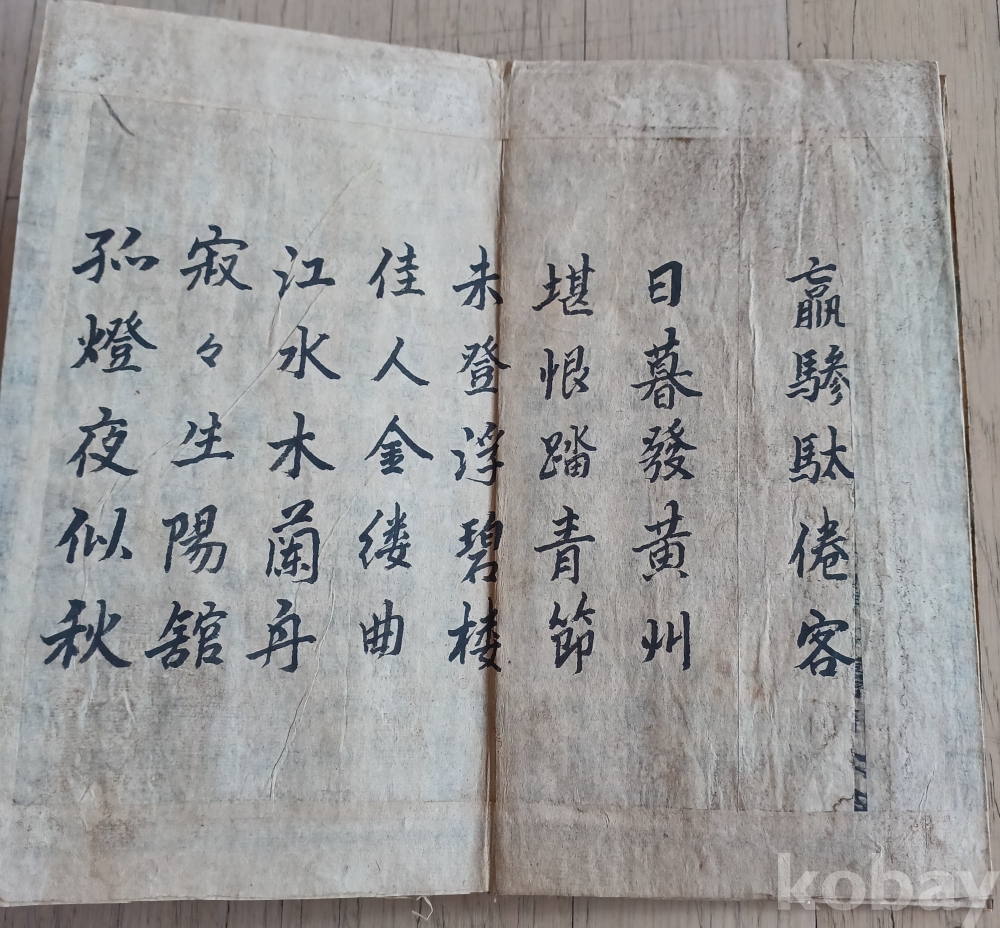 羸驂駄倦客
日暮發黄州
堪恨踏青節
未登浮碧楼
佳人金缕曲
江水木蘭舟
寂々生陽舘
孤燈夜似秋
kobay